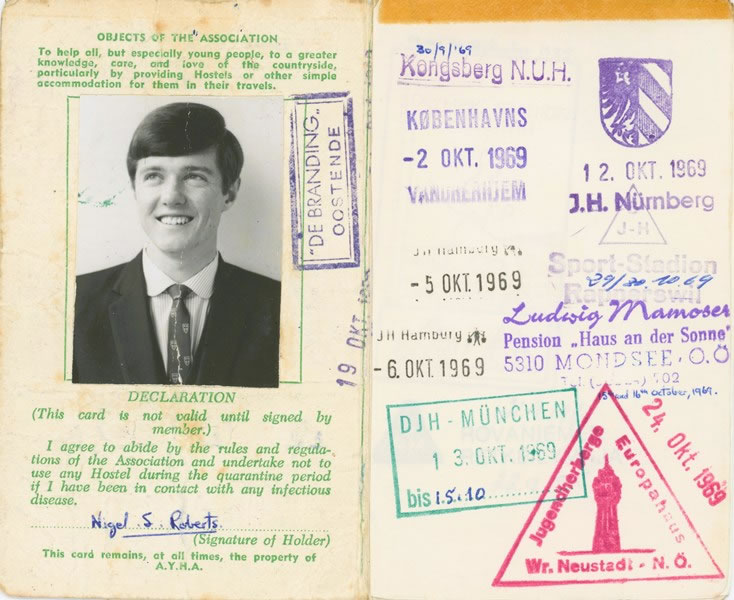 OBJECTS OF THE ASSOCIATION
To help all, but especially young people, to a greater
knowledge, care, and love of the countryside,
particularly by providing Hostels or other simple
accommodation for them in their travels.
"DE BRANDING"
OOSTENDE
19 OKT
DECLARATION
(This card is not valid until signed by
member.)
I agree to abide by the rules and regula-
tions of the Association and undertake not to
use any Hostel during the quarantine period
if I have been in contact with any infectious
disease.
Nigel S. Roberts
(Signature of Holder)
This card remains, at all times, the property of
A.Y.H.A.
30/9/'69
Kongsberg N.U.H.
KØBENHAVNS
-2 OKT. 1969
VANDRERHJEM
12. OKT. 1969
J.H. Nürnberg
J-H
JH Hamburg
-5 OKT. 1969
Sport-Stadion
29/30.10.69
Rapperswil
JH Hamburg
-6. OKT. 1969
Ludwig Mamoser
Pension „Haus an der Sonne"
5310 MONDSEE - O.Ö
502
15th and 16th october, 1969.
DJH - MÜNCHEN
13. OKT. 1969
bis 15.10
24. Okt. 1969
Jugendherberge
Europahaus
Wr. Neustadt - N.Ö.